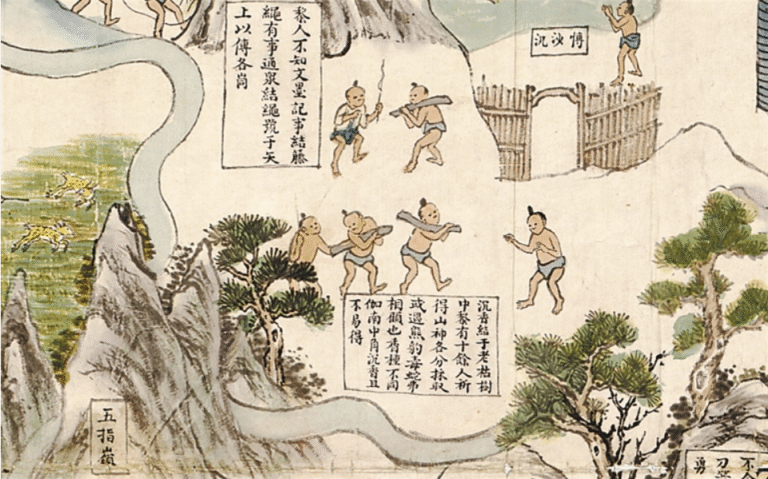 黎人不知文墨記事結藤
繩有事通衆結繩號于矢
上以傳各峒
沉香結于老枯樹
中黎有十餘人祈
得山神各分採取
或遇熊豹毒蛇
相顧也香種不同
伽南中角沉香且
不易得
五指嶺